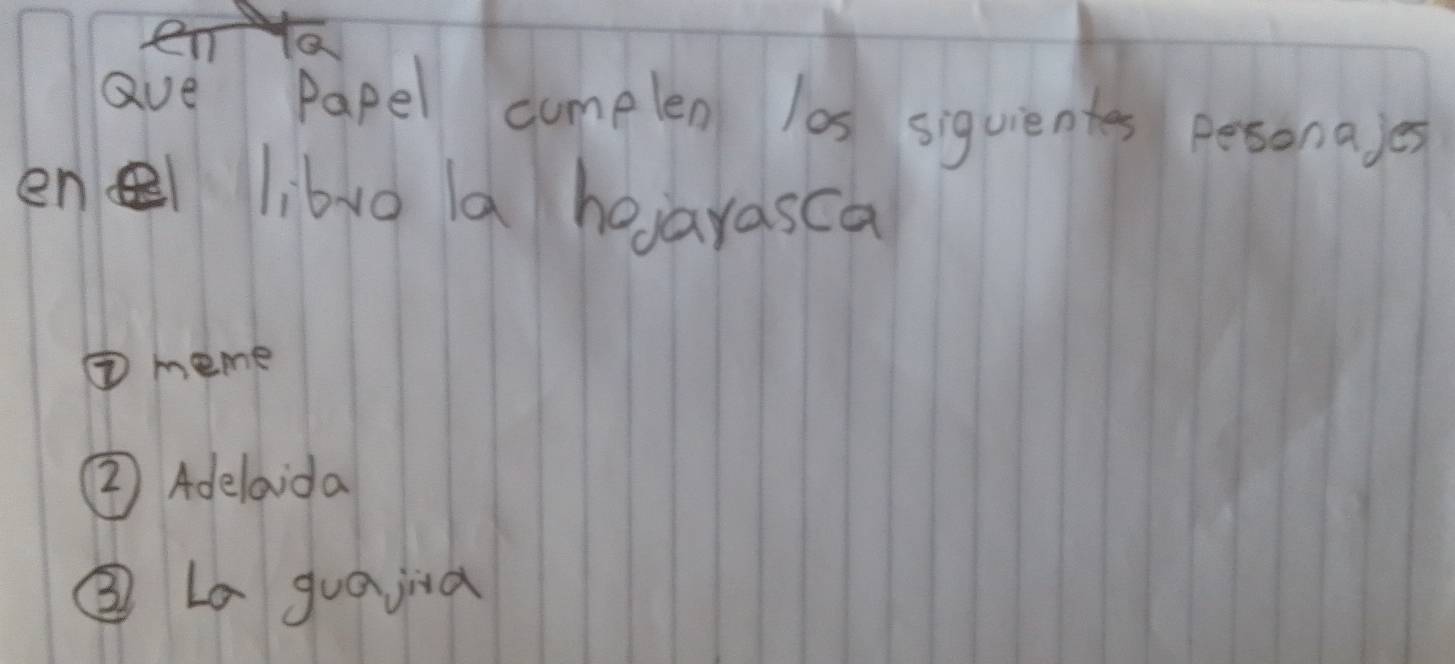 en la
Que Papel cumplen los siguientes pesonajes
en el libro la hojarasca
① meme
② Adelaida
③ La guajira